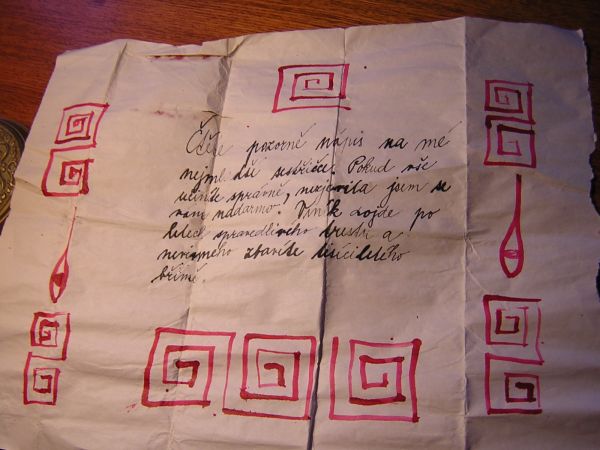 Čtěte pozorně nápis na mé
nejmladší sestřičce. Pokud vše
učiníte správně, nezjevila jsem se
vám nadarmo. Viník dojde po
letech spravedlivého trestu a
nevinného zbavíte tisíciletého
břímě.